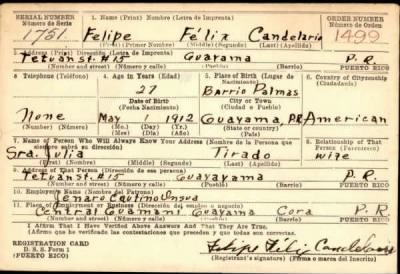 SERIAL NUMBER 1. Name (Print) Nombre (Letra de Imprenta) ORDER NUMBER
Número de Serie Número de Orden
1751 Felipe Féliz Candelario 1499
(Print) (First) (Primer Nombre) (Middle) (Segundo) (Last) (Apellido)
2. Address (Print) Dirección (Letra de Imprenta)
Tetuan St. #15 Guayama P. R.
(Number and street) (Número y calle) (City or town) (Ciudad o pueblo) PUERTO RICO
3. Telephone (Teléfono) 4. Age in Years (Edad) 5. Place of Birth (Lugar de Nacimiento) 6. Country of Citizenship (Ciudadanía)
27 Barrio Palmas
Date of Birth City or Town
(Fecha Nacimiento) (Ciudad o Pueblo)
None May 1 1912 Guayama, P.R. American
(Number) (Número) (Mo.) (Mes) (Day) (Día) (Yr.) (Año) (State or country) (Estado o país)
7. Name of Person Who Will Always Know Your Address (Nombre de la Persona que siempre sabrá su dirección) 8. Relationship of That Person (Parentesco)
Sra. Julia Tirado wife
(First) (Nombre) (Middle) (Segundo) (Last) (Apellido)
9. Address of That Person (Dirección de esa persona)
Tetuan St. #15 Guayama P. R.
(Number and street) (Número y calle) (City or town) (Ciudad o pueblo) PUERTO RICO
10. Employer's Name (Nombre del Patrono)
Genaro Cautino Insua
11. Place of Employment or Business (Dirección del empleo o negocio)
Central Guamani Guayama P. R.
(Number and street) (Número y calle) (City or town) (Ciudad o pueblo) PUERTO RICO
I Affirm That I Have Verified Above Answers And That They Are True.
(Afirmo que he verificado las contestaciones que preceden y que todas son correctas.
REGISTRATION CARD
D. S. S. Form 1
(PUERTO RICO)
Felipe Féliz Candelario
(Registrant's signature) (Firma o marca del inscrito)